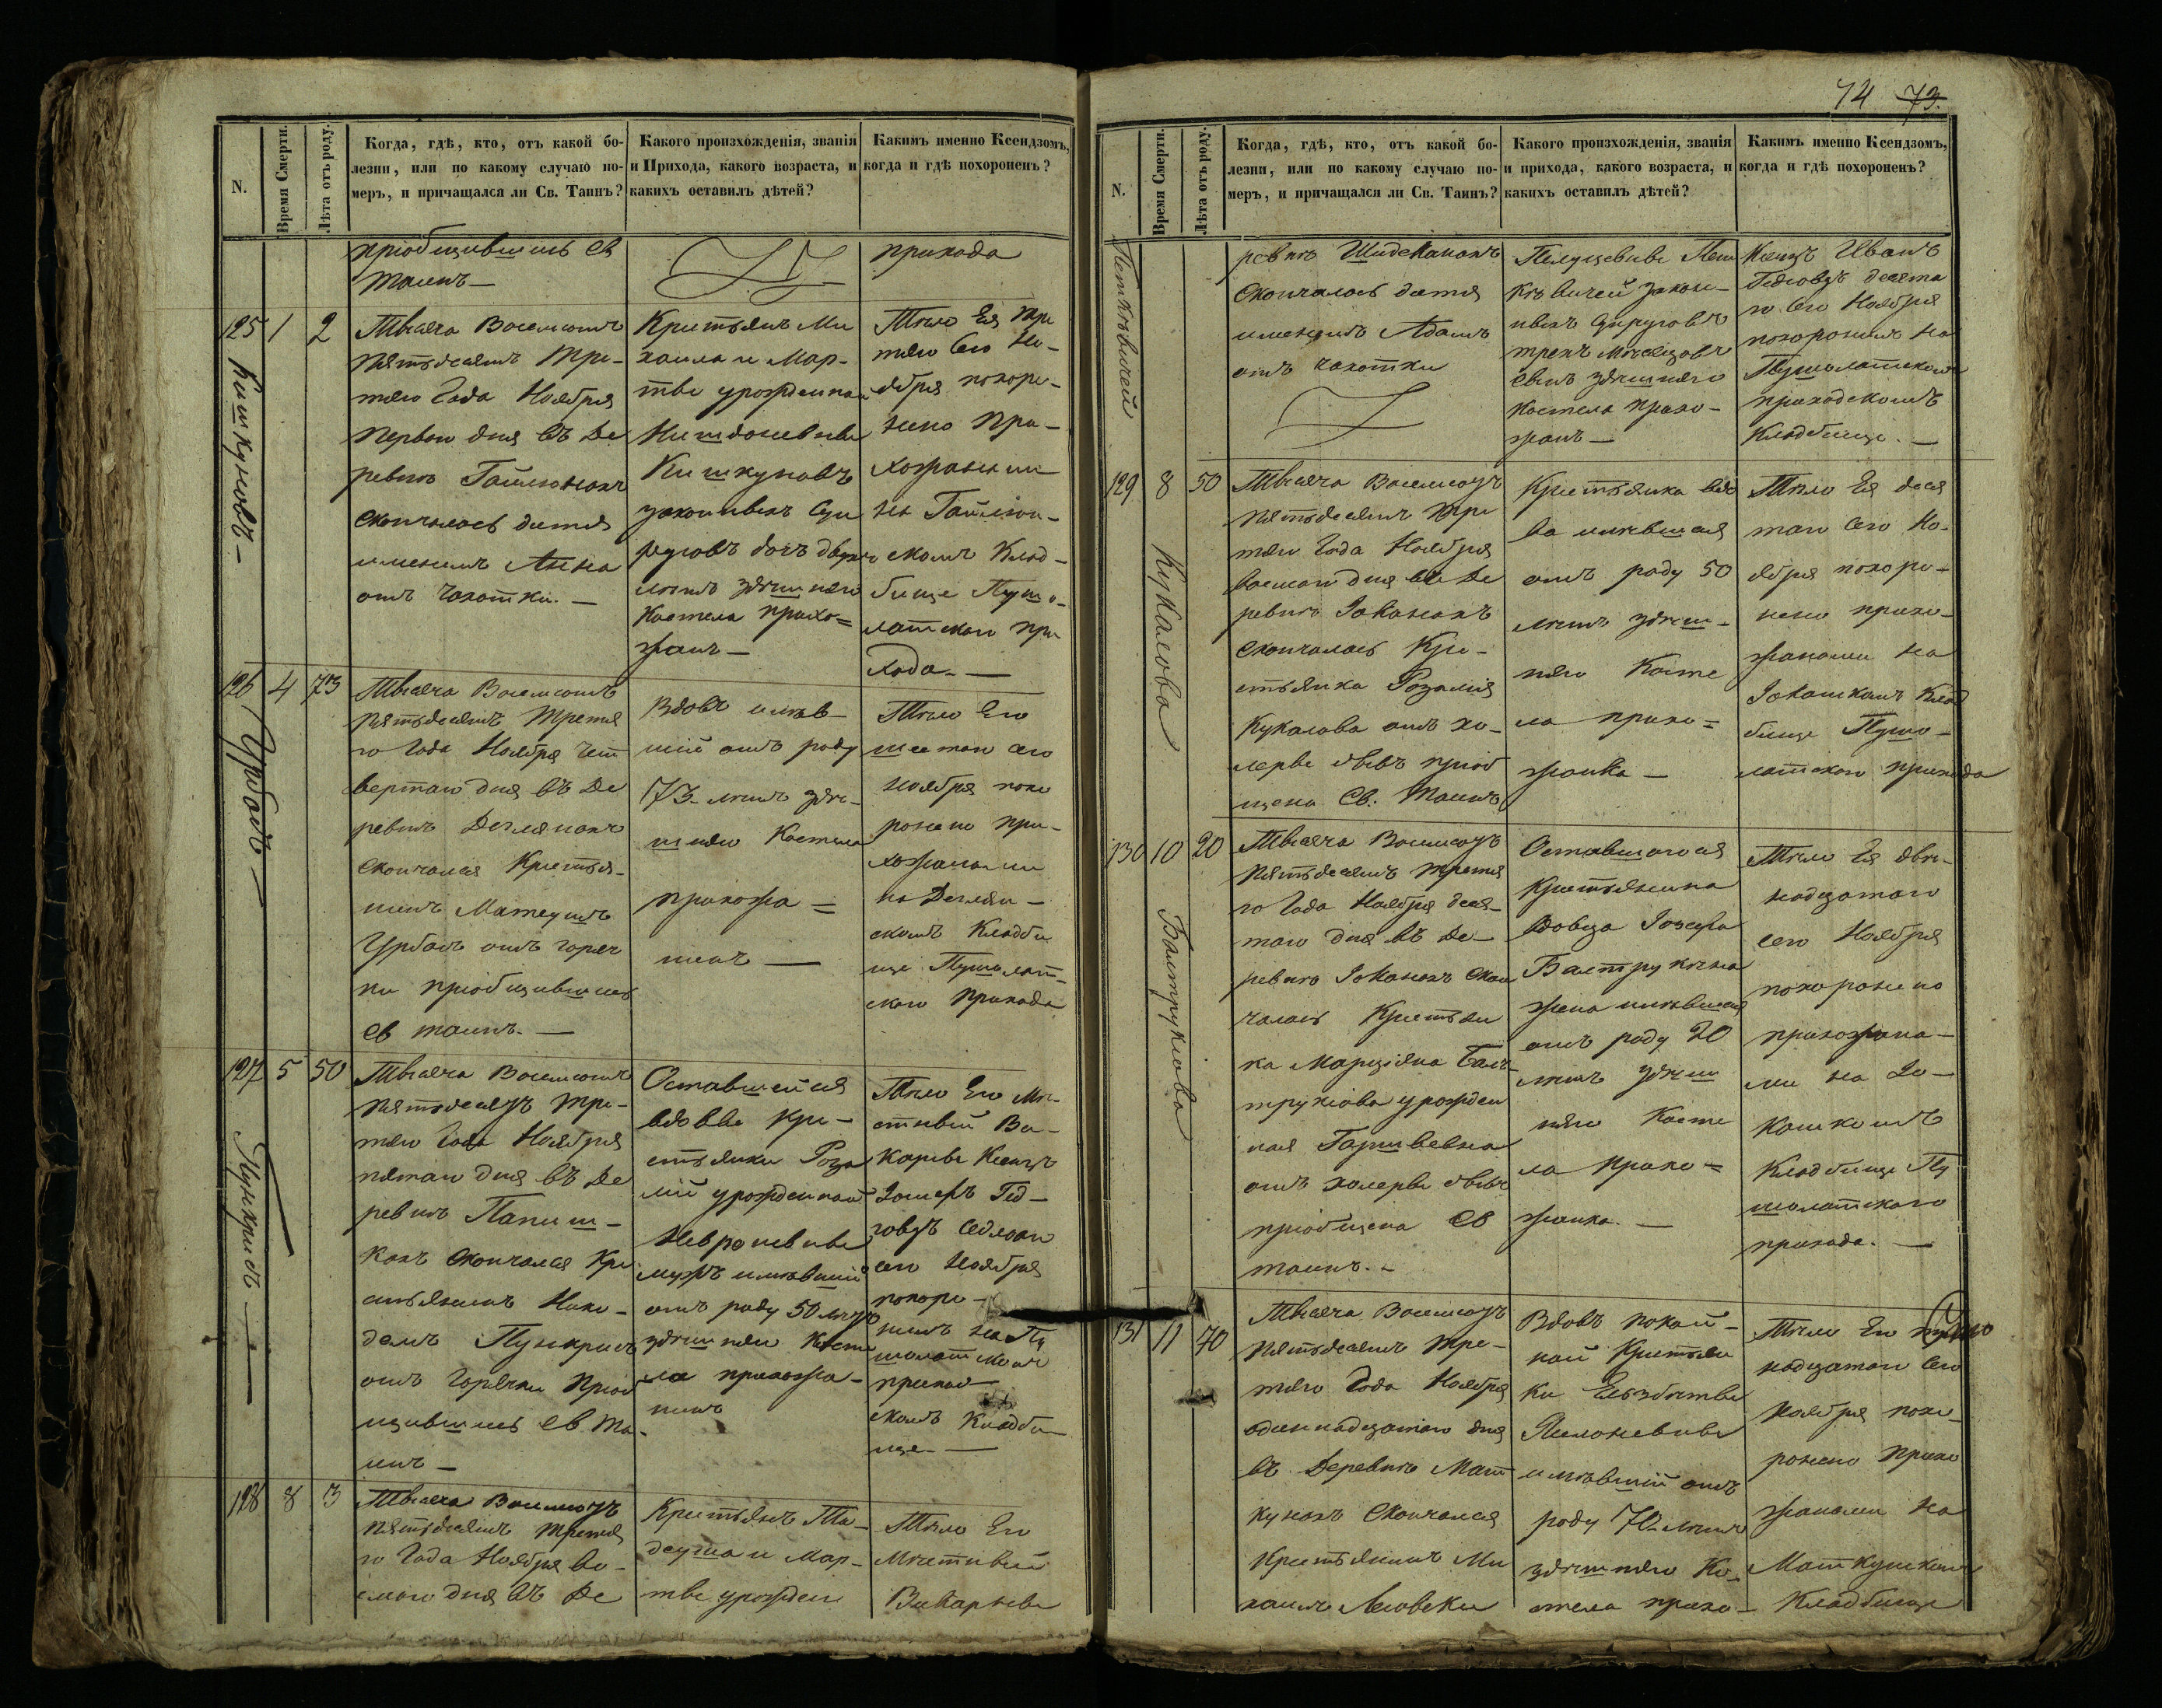 74 73.
N.
Время Смерти.
Лѣта отъ роду.
Когда, гдѣ, кто, отъ какой бо-
лезни, или по какому случаю по-
меръ, и причащался ли Св. Таинъ?
Какого произхожденія, званія
и Прихода, какого возраста, и
какихъ оставилъ дѣтей?
Какимъ именно Ксендзомъ,
когда и гдѣ похороненъ?
пріобщившись Св
таинъ —
прихода
125
1
2
Кишкуновъ —
Тысяча Восемсотъ
Пятьдесятъ тре-
тяго Года Ноября
Перваго дня въ Де
ревнѣ
скончалось дитя
именемъ Анна
отъ чахотки. —
Крестьянъ Ми
хаила и Мар-
ты урожденной
Кишкуновъ
законныхъ Суп
руговъ дочь двухъ
лѣтъ здѣшняго
Костела прихо=
жанъ —
Тѣло Ея тре
тяго Сего Но-
ября похоро-
нено при-
хожанами
на
скомъ Клад-
бище Пушо-
латскаго при
хода. —
126
4
73
Урбанъ —
Тысяча Восемсотъ
Пятьдесятъ третья
го Года Ноября чет
вертаго дня въ Де
ревнѣ
скончался Крестья-
нинъ Матеушъ
Урбанъ отъ горяч
ки пріобщившись
Св таинъ. —
Вдовъ имѣв-
шій отъ роду
73 лѣтъ здѣ-
шняго Костела
прихожа =
нинъ —
Тѣло Его
шестаго сего
Ноября похо
ронено при-
хожанами
на
скомъ Кладби
ще Пушолат-
скаго прихода
127
5
50
Пункрисъ —
Тысяча Восемсотъ
Пятьдесятъ тре-
тяго Года Ноября
пятаго дня въ Де
ревнѣ Папиш-
кахъ скончался Кре
стьянинъ Нико-
демъ Пункрисъ
отъ Горячки Пріоб
щившись Св. Та-
инъ —
Оставшейся
вдовы Кре-
стьянки Роза
ліи урожденной
мужъ имѣвшій
отъ роду 50 лѣтъ
здѣшняго Косте
ла прихожа-
нинъ
Тѣло Его Мѣ-
стный Ви-
карый Ксендзъ
седмаго
сего Ноября
похоро-
нилъ на Пу
шолатскомъ
приход-
скомъ Кладби-
ще —
128
8
3
Тысяча Восемсотъ
Пятьдесятъ третья
го Года Ноября Во-
смаго дня въ Де
Крестьянъ Та-
деуша и Мар-
ты урожден
Тѣло Его
Мѣстный
Викарый
N.
Время Смерти.
Лѣта отъ роду.
Когда, гдѣ, кто, отъ какой бо-
лезни, или по какому случаю по-
меръ, и причащался ли Св. Таинъ?
Какого произхожденія, званія
и прихода, какого возраста, и
какихъ оставилъ дѣтей?
Какимъ именно Ксендзомъ,
когда и гдѣ похороненъ?
Петкѣвичей
ревнѣ
скончалось дитя
именемъ Адамъ
отъ чахотки
Пет
кѣвичей закон-
ныхъ Супруговъ
трехъ мѣсяцовъ
сынъ здѣшняго
Костела прихо-
жанъ —
Ксендзъ Иванъ
десята
го Сего Ноября
похоронилъ на
Пушолатскомъ
приходскомъ
Кладбище. —
129
8
50
Кукалова
Тысяча Восемсотъ
Пятьдесятъ тре
тяго Года Ноября
восмаго дня въ Де
ревнѣ Іоканахъ
скончалась Кре-
стьянка Розалія
Кукалова отъ хо-
леры бывъ пріоб
щена Св. Таинъ
Крестьянка вдо
ва имѣвшая
отъ роду 50
лѣтъ здѣш-
няго Косте
ла прихо=
жанка —
Тѣло Ея деся
таго сего Но-
ября похоро-
нено прихо-
жанами на
Іоканскомъ Клад
бище Пушо-
латскаго прихода
130
10
20
Балтрукѣова
Тысяча Восемсотъ
Пятьдесятъ третья
го Года Ноября деся-
таго дня въ Де-
ревнѣ Іоканахъ скон
чалась Крестьян
ка Марціяна Бал-
трукѣова урожден
ная
отъ холеры бывъ
пріобщена Св
таинъ. —
Оставшагося
Крестьянина
Вдовца Іозефа
жена имѣвшая
отъ роду 20
лѣтъ здѣш
няго Косте
ла прихо=
жанка. —
Тѣло Ея двѣ-
надцатаго
сего Ноября
похоронено
прихожана-
ми на Іо-
канскомъ
Кладбище Пу
шолатскаго
прихода. —
131
11
70
Тысяча Восемсотъ
Пятьдесятъ тре-
тяго Года Ноября
одиннадцатаго дня
въ Деревнѣ Мат
кунахъ скончался
Крестьянинъ Ми
хаилъ
Вдовъ покой-
ной Крестьян
ки Ельзбѣты
имѣвшій отъ
роду 70 лѣтъ
здѣшняго Ко-
стела прихо-
Тѣло Его
надцатаго Сего
Ноября похо-
ронено прихо
жанами на
Маткунскомъ
Кладбище